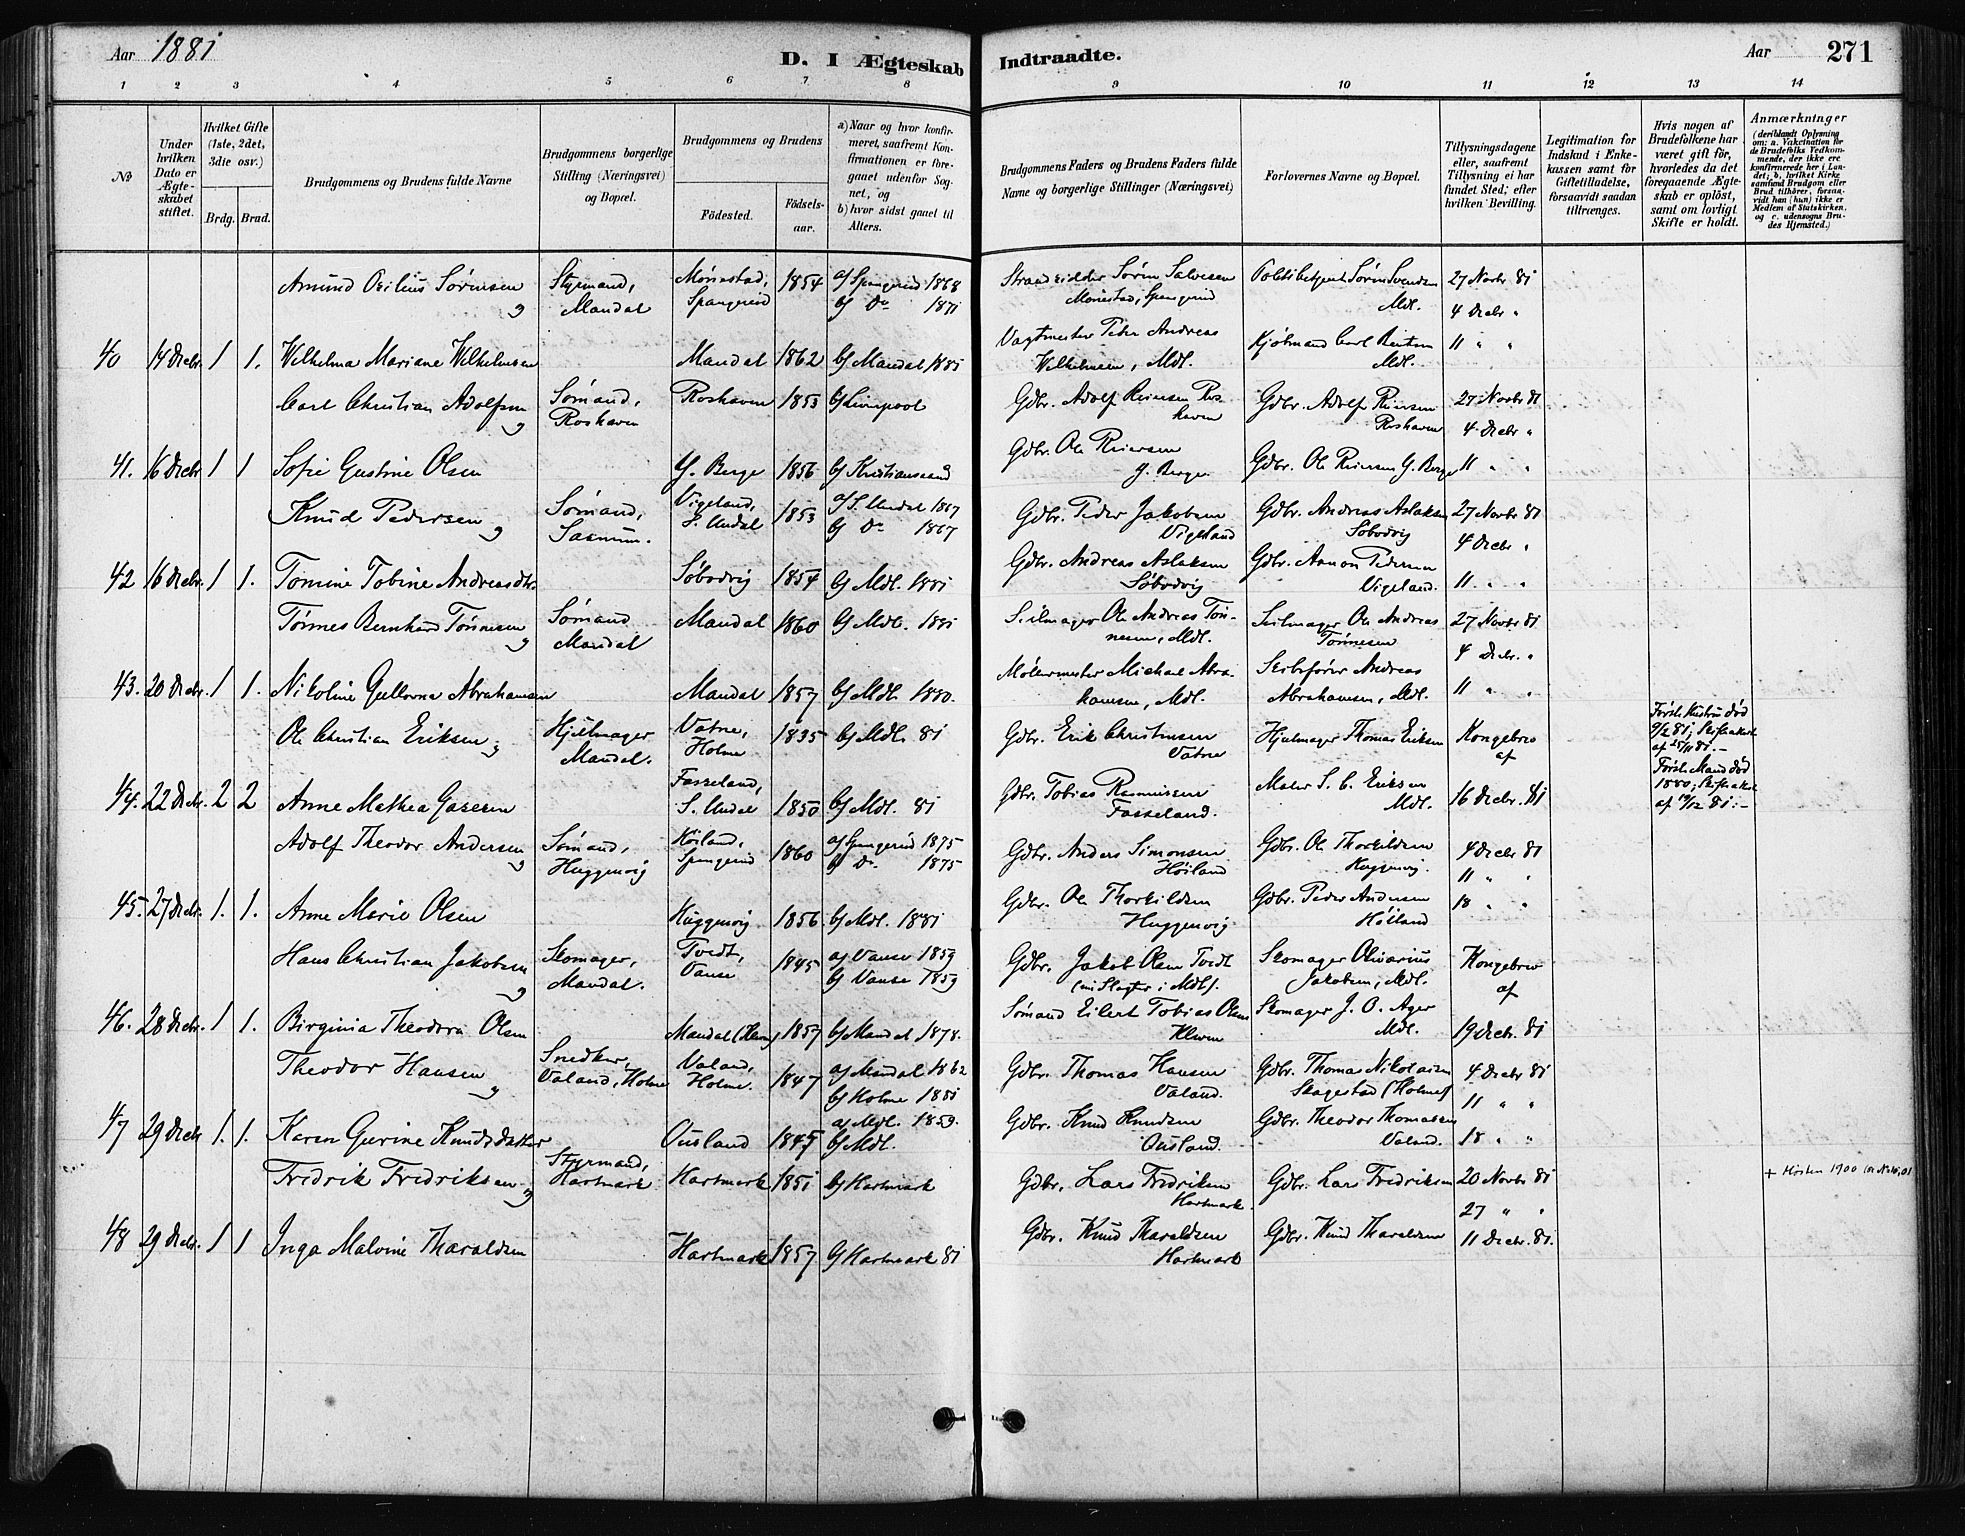 Aar 1881
D. I Ægteskab Indtraadte.
Aar 271
1 2 3 4 5 6 7 8 9 10 11 12 13 14
No
Under hvilken Dato er Ægteskabet stiftet.
Hvilket Gifte (1ste, 2det, 3die osv.)
Brdg. Brud.
Brudgommens og Brudens fulde Navne
Brudgommens borgerlige Stilling (Næringsvei) og Bopæl.
Brudgommens og Brudens
Födested.
Födselsaar.
a) Naar og hvor konfirmeret, saafremt Konfirmationen er foregaaet udenfor Sognet, og
b) hvor sidst gaaet til Alters.
Brudgommens Faders og Brudens Faders fulde Navne og borgerlige Stillinger (Næringsvei)
Forlovernes Navne og Bopæl.
Tillysningsdagene eller, saafremt Tillysning ei har fundet Sted; efter hvilken Bevilling.
Legitimation for Indskud i Enkekassen samt for Giftetilladelse, forsaavidt saadan tiltrænges.
Hvis nogen af Brudefolkene har været gift för, hvorledes da det foregaaende Ægteskab er oplöst, samt om lovligt Skifte er holdt.
Anmærkninger
(deriblandt Oplysning om: a. Vaccination for de Brudefolks Vedkommende, der ikke ere konfirmerede her i Landet; b. hvilket Kirkesamfund Brudgom eller Brud tilhörer, forsaavidt han (hun) ikke er Medlem af Statskirken, og c. udensogns Brudes Hjemsted.)
Amund Sørensen Styrmand, Mandal Spangereid 1854 a) Spangereid 1868 b) Do 1871 Søren Salvesen Spangereid Søren Svendsen Mdl. 27 Novbr 81 4 Decbr "
40 14 Decbr. 1 1. Wilhelma Mariane Wilhelmsen Mandal 1862 b) Mandal 1881 Vagtmester Peder Andreas Wilhelmsen, Mdl. Kjøbmand Carl Mdl. 11 " "
Carl Christian Adolfsen og Sømand, Roshaven Roshaven 1853 b) Liverpool Gdbr. Adolf Reiersen Roshaven Gdbr. Adolf Reiersen Roshaven 27 Novbr 81 4 Decbr "
41. 16 Decbr 1 1 Sofie Gustine Olsen Y. Berge 1856 b) Kristianssand Gdbr. Ole Reiersen Y. Berge Gdbr. Ole Reiersen Y. Berge 11 " "
Knud Pedersen og Sømand, Vigeland, S. Undal 1853 a) S. Undal 1867 b) Do 1867 Gdbr. Peder Jakobsen Vigeland Gdbr. Andreas Aslaksen Søbodvig 27 Novbr 81 4 Decbr "
42 16 Decbr. 1 1. Tomine Tobine Andreasdtr. Søbodvig 1854 b) Mdl. 1881 Gdbr. Andreas Aslaksen Søbodvig Gdbr. Aanon Pedersen Vigeland. 11. " "
Tønnes Bernhard Tønnesen og Sømand Mandal Mandal 1860 b) Mdl. 1881 Seilmager Ole Andreas Tønnesen, Mdl. Seilmager Ole Andreas Tønnesen 27 Novbr 81 4 Decbr. "
43. 20 Decbr. 1 1. Nikoline Abrahamsen Mandal 1857 b) Mdl. 1880. Michael Abrahamsen, Mdl. Skibsfører Andreas Abrahamsen, Mdl. 11 " "
Ole Christian Eriksen og Hjulmager Mandal. Vatne, Holme 1835 b) Mdl. 81 Gdbr. Erik Christensen Vatne Hjulmager Thomas Eriksen Kongebrev af Første Hustru død 9/2 81; Skifteattest af 25/11 81.-
44. 22 Decbr. 2 2 Anne Mathea Fasseland, S. Undal 1850 b) Mdl. 81 Gdbr. Tobias Rasmussen Fasseland. Maler S. C. Eriksen Mdl. 16 Decbr. 81 Første Mand død 1880; Skifteattest af 19/12 81.-
Adolf Theodor Andersen og Sømand, Huggenvig Høiland, Spangereid 1860 a) Spangereid 1875 b) Do. 1875 Gdbr. Anders Simonsen Høiland Gdbr. Ole Thorkildsen Huggenvig. 4 Decbr 81 11 " "
45. 27 Decbr. 1. 1. Anne Marie Olsen Huggenvig 1856 b) Mdl. 1881 Gdbr. Ole Thorkildsen Huggenvig Gdbr. Peder Andersen Høiland 18 " "
Hans Christian Jakobsen og Skomager, Mandal. Tvedt, Vanse 1845 a) Vanse 1859 b) Vanse 1859 Gdbr. Jakob Olsen Tvedt (nu Slagter i Mdl). Skomager Olivarius Jakobsen, Mdl. Kongebrev af
46. 28 Decbr. 1 1. Birginia Theodora Olsen Mandal (Kleven) 1857 b) Mandal 1878. Sømand Eilert Tobias Olsen Kleven Skomager J. O. Ager Mdl. 19 Decbr. 81
Theodor Hansen og Snedker, Valand, Holme Valand, Holme. 1847 a) Mandal 1862 b) Holme 1881 Gdbr. Thomas Hansen Valand. Gdbr. Thomas Nikolaisen Skagestad (Holme) 4 Decbr 81 11 " "
47 29 Decbr 1. 1. Karen Gurine Knudsdatter Ousland 1845 a) Mdl. 1859. b) Mdl. Gdbr. Knud Knudsen Ousland. Gdbr. Theodor Thomassen Valand. 18 " "
Fredrik Fredriksen og Styrmand, Hartmark Hartmark 1851 b) Hartmark Gdbr. Lars Fredriksen Hartmark. Gdbr. Lars Fredriksen 20 Novbr 81 27 " " + Høsten 1900
48 29 Decbr. 1 1 Inga Malvine Tharaldsen Hartmark 1857 b) Hartmark 81 Gdbr. Knud Tharaldsen Hartmark Gdbr. Knud Tharaldsen 11 Decbr. 81.